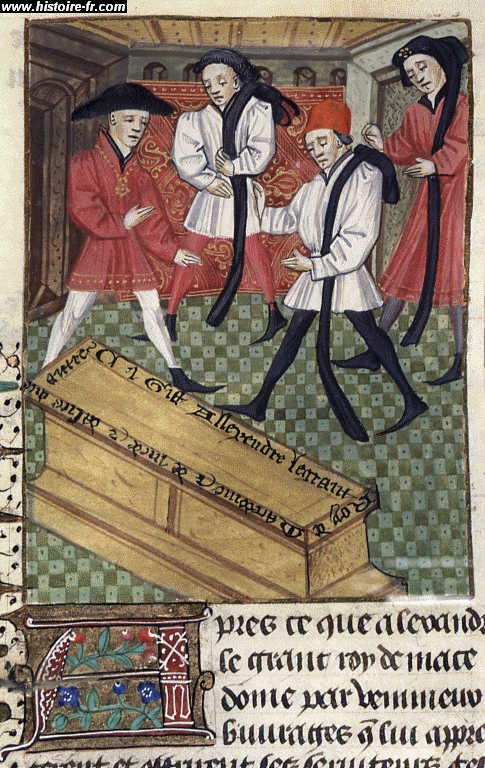 www.histoire-fr.com
Ci Gist Allexendre le grant Roy
Apres ce que alexandr
le grant roy de mace
done par venimeux
buurages q lui appre
et ses seruiteurs